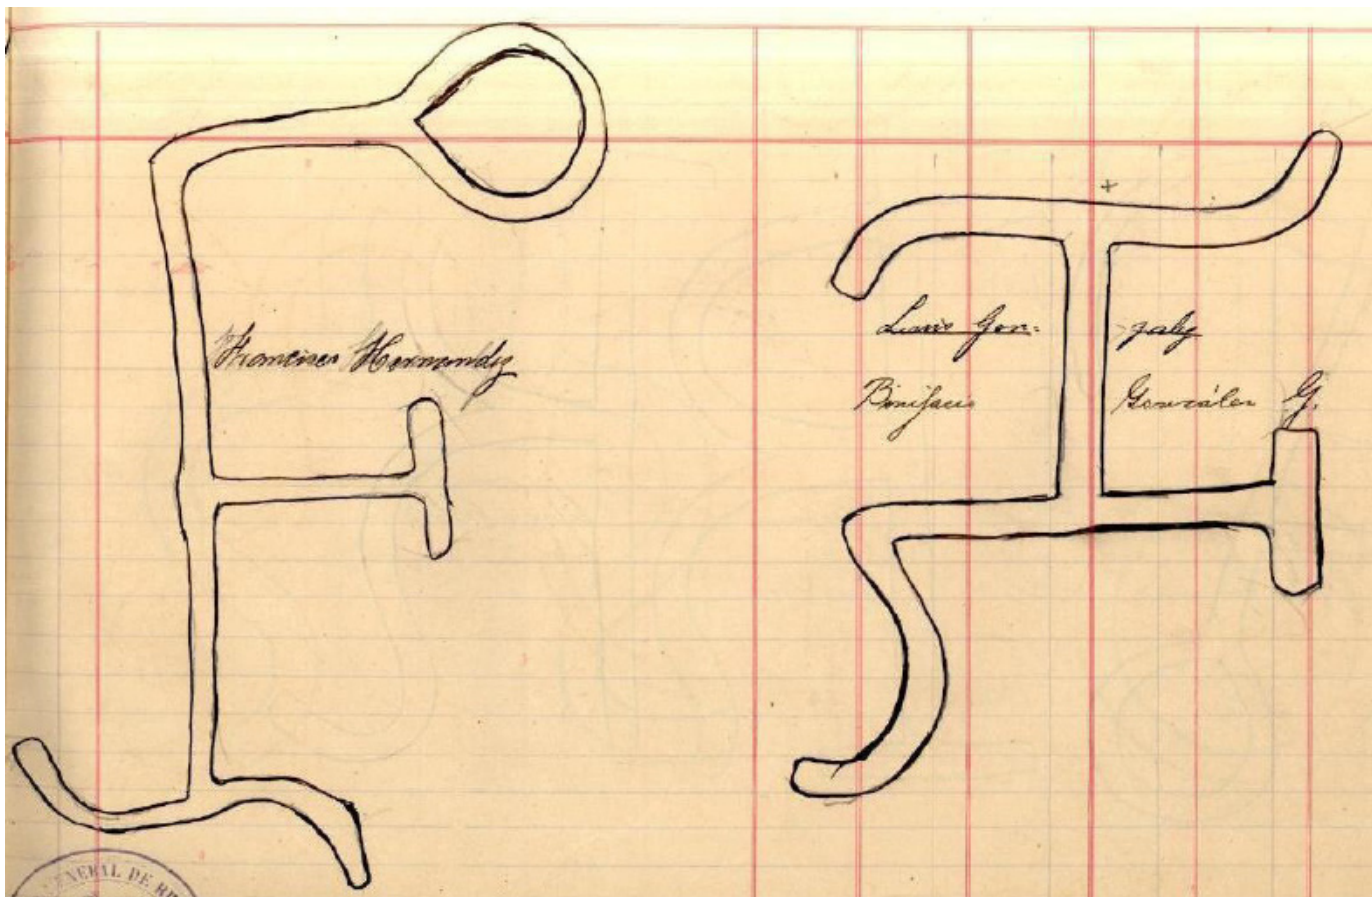 Francisco Hernandez
Luis Gon=
zalez
Bonifacio González G.
ENERAL DE RE